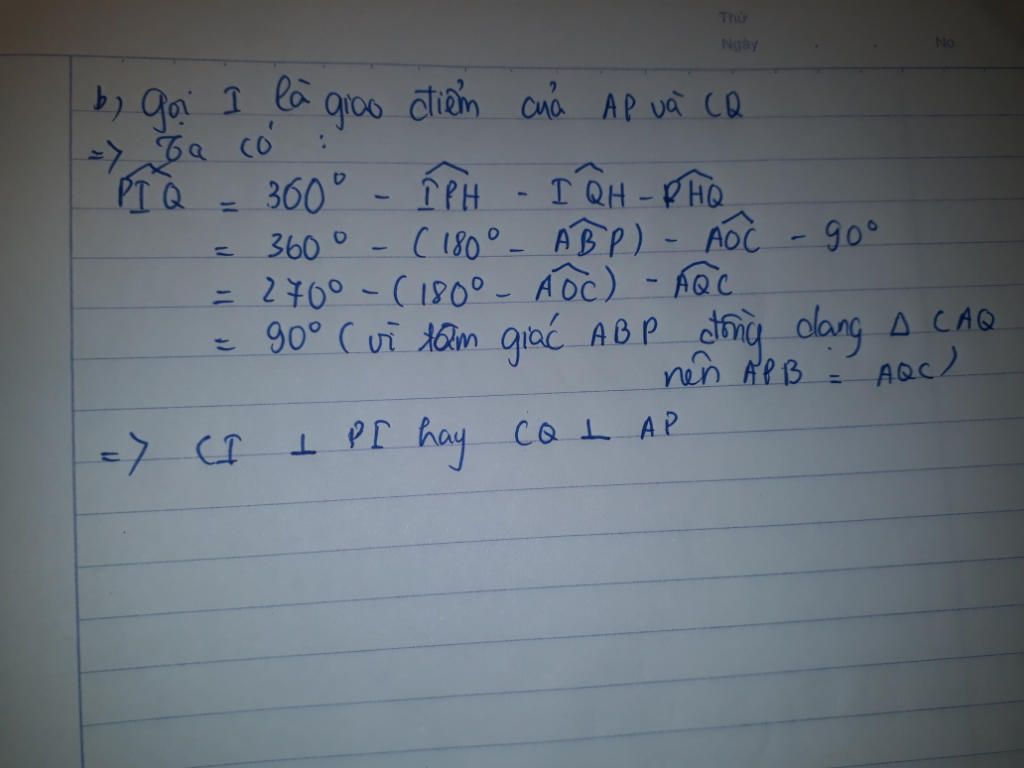 Thứ
Ngày . . No
b, Gọi I là giao điểm của AP và CQ
=> Ta có :
PIQ = 360° - IPH - IQH - PHQ
= 360° - (180° - ABP) - AOC - 90°
= 270° - (180° - AOC) - AQC
= 90° (vì tam giác ABP đồng dạng Δ CAQ
nên APB = AQC)
=> CI ⊥ PI hay CQ ⊥ AP